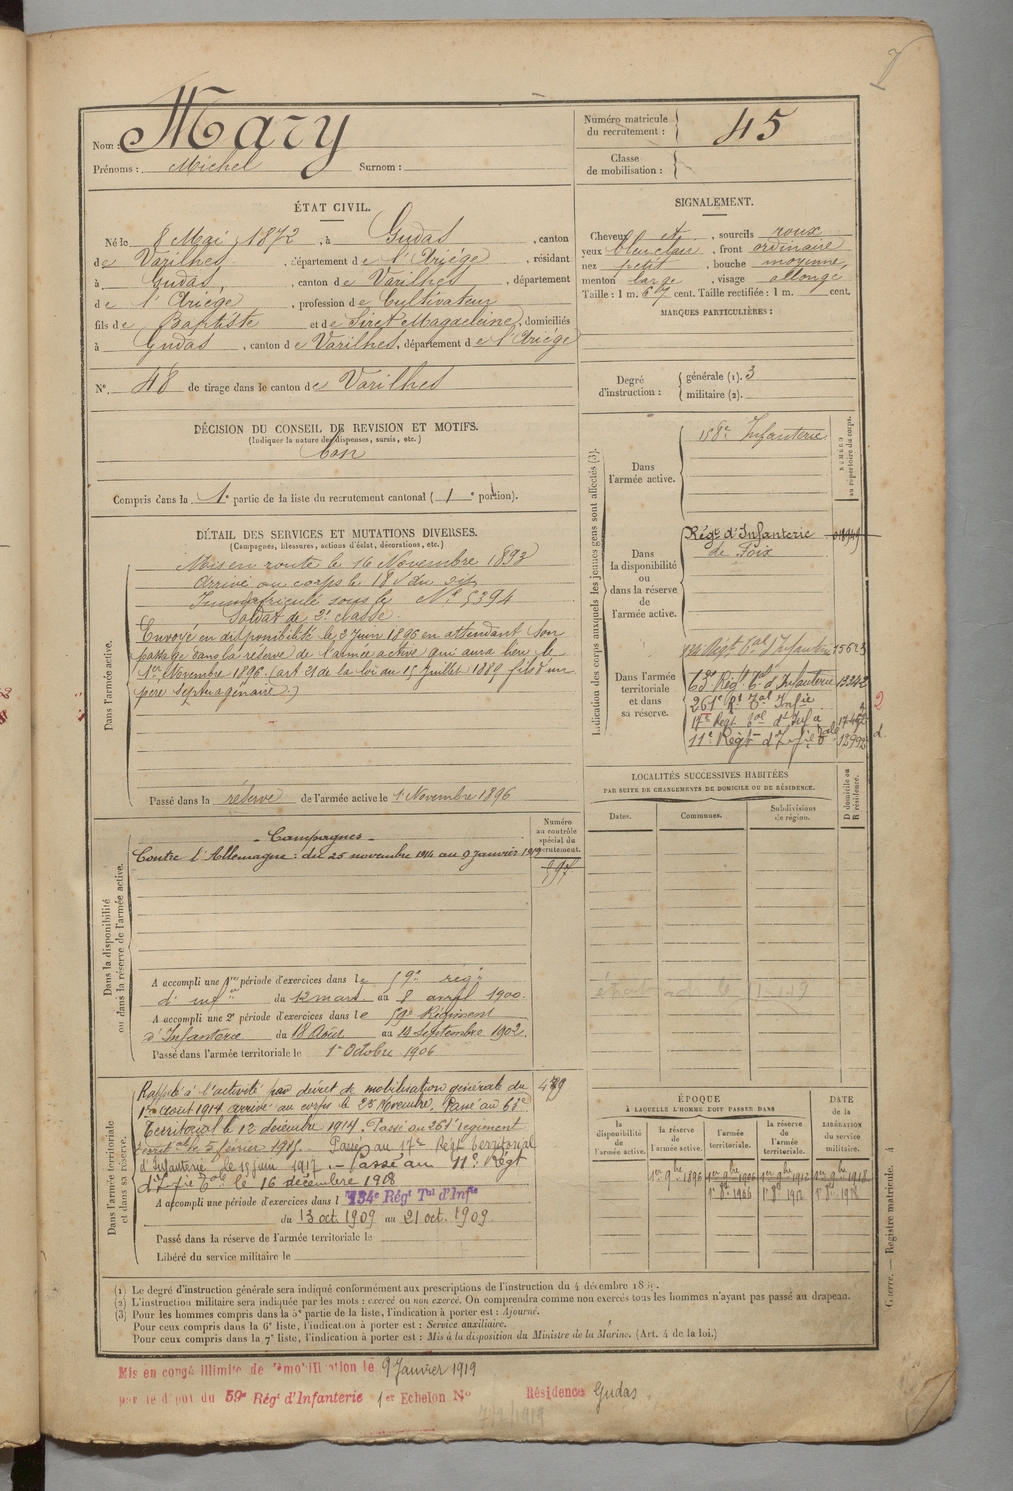 Nom : Mary
Prénoms : Michel Surnom :
Numéro matricule
du recrutement : 45
Classe
de mobilisation :
ÉTAT CIVIL.
Né le 8 Mai 1872, à Gudas, canton
de Varilhes, département de l'Ariège, résidant
à Gudas, canton de Varilhes, département
de l'Ariège, profession de Cultivateur
fils de Baptiste et de Siret Magdeleine, domiciliés
à Gudas, canton de Varilhes, département de l'Ariège
N° 48 de tirage dans le canton de Varilhes
SIGNALEMENT.
Cheveux et, sourcils roux
yeux bleu clair, front ordinaire
nez petit, bouche moyenne,
menton large, visage allongé
Taille : 1 m. 67 cent. Taille rectifiée : 1 m. cent.
MARQUES PARTICULIÈRES :
Degré
d'instruction :
générale (1). 3
militaire (2).
DÉCISION DU CONSEIL DE REVISION ET MOTIFS.
(Indiquer la nature des dispenses, sursis, etc.)
bon
Compris dans la 1e partie de la liste du recrutement cantonal (1e portion).
DÉTAIL DES SERVICES ET MUTATIONS DIVERSES.
(Campagnes, blessures, actions d'éclat, décorations, etc.)
Dans l'armée active.
Mis en route le 16 Novembre 1893
Arrivé au corps le 18 du dit
Immatriculé sous le N° 5394
Soldat de 2e classe
Envoyé en disponibilité le 3 Juin 1896 en attendant son
passage dans la réserve de l'armée active qui aura lieu le
1er Novembre 1896. (art 21 de la loi du 15 Juillet 1889 fils d'un
père septuagénaire.)
Passé dans la réserve de l'armée active le 1 Novembre 1896
Indication des corps auxquels les jeunes gens sont affectés (3).
NUMÉRO
au répertoire du corps.
Dans
l'armée active.
158e Infanterie
Dans
la disponibilité
ou
dans la réserve
de
l'armée active.
Régt d'Infanterie
de Foix
Dans l'armée
territoriale
et dans
sa réserve.
134 Régt Tal d'Infanterie 15623
63e Régt Tal d'Infanterie 13242
261e Rt Tal Infie
17e Régt Tal d'Infie
11e Régt d'Infie Tale 12992
2
d.
Dans la disponibilité
ou dans la réserve de l'armée active.
Numéro
au contrôle
spécial du
recrutement.
597
- Campagnes -
Contre l'Allemagne : du 25 novembre 1914 au 9 Janvier 1919
A accompli une 1re période d'exercices dans le 59e régt
d'infie du 12 mars au 8 avril 1900.
A accompli une 2e période d'exercices dans le 59e Régiment
d'Infanterie du 18 Août au 14 Septembre 1902.
Passé dans l'armée territoriale le 1er Octobre 1906
LOCALITÉS SUCCESSIVES HABITÉES
PAR SUITE DE CHANGEMENTS DE DOMICILE OU DE RÉSIDENCE.
Dates. Communes. Subdivisions
de région.
D domicile ou
R résidence.
Dans l'armée territoriale
et dans sa réserve.
Rappelé à l'activité par décret de mobilisation générale du
1er août 1914 arrivé au corps le 25 Novembre. Passé au 63e
Territorial le 12 décembre 1914. Passé au 261e régiment
territal le 5 février 1915. Passé au 17e Régt territorial
d'Infanterie le 15 juin 1917. - Passé au 11e Régt
d'Infie Tale le 16 décembre 1918
A accompli une période d'exercices dans l 134e Régt Tal d'Infie
du 13 oct. 1909 au 21 oct. 1909.
Passé dans la réserve de l'armée territoriale le
Libéré du service militaire le
ÉPOQUE
À LAQUELLE L'HOMME DOIT PASSER DANS
la
disponibilité
de
l'armée active.
la réserve
de
l'armée active.
l'armée
territoriale.
la réserve
de
l'armée
territoriale.
DATE
de la
LIBÉRATION
du service
militaire.
1er 9bre 1896 1er 9bre 1906 1er 9bre 1912 1er 9bre 1918
1er 8bre 1906 1er 8bre 1912 1er 8bre 1918
Guerre. — Registre matricule. 4
(1) Le degré d'instruction générale sera indiqué conformément aux prescriptions de l'instruction du 4 décembre 1889.
(2) L'instruction militaire sera indiquée par les mots : exercé ou non exercé. On comprendra comme non exercés tous les hommes n'ayant pas passé au drapeau.
(3) Pour les hommes compris dans la 5e partie de la liste, l'indication à porter est : Ajourné.
Pour ceux compris dans la 6e liste, l'indication à porter est : Service auxiliaire.
Pour ceux compris dans la 7e liste, l'indication à porter est : Mis à la disposition du Ministre de la Marine. (Art. 4 de la loi.)
Mis en congé illimité de démobilisation le 9 Janvier 1919
par le dépôt du 59e Régt d'Infanterie 1er Echelon N° Résidence Gudas